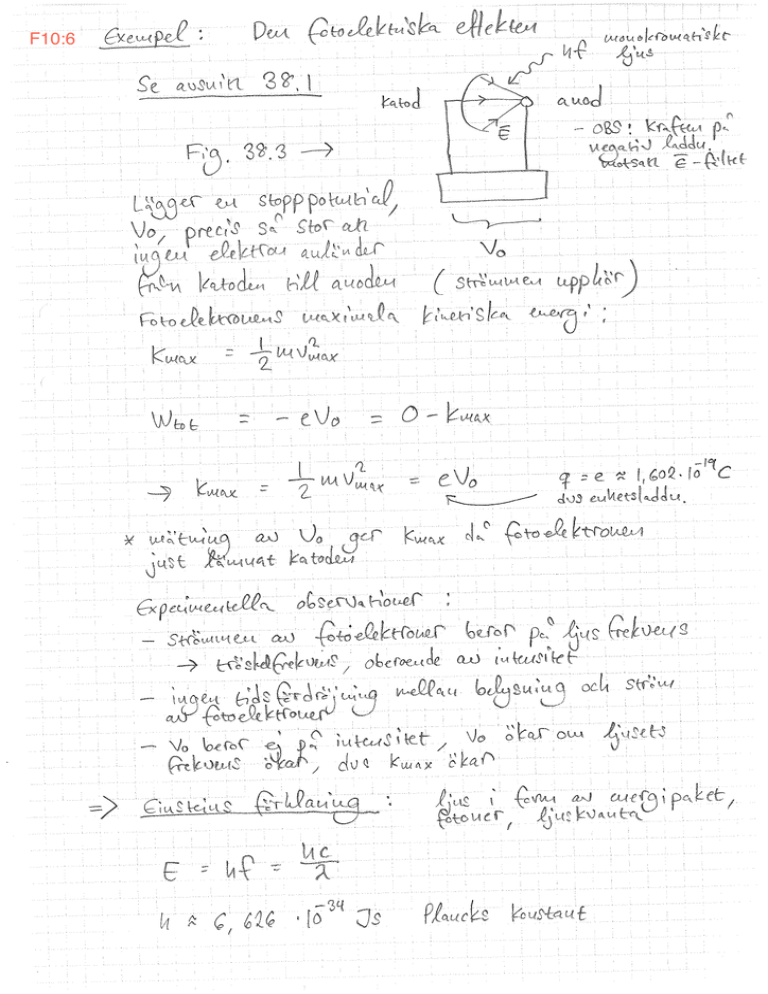 F10:6 Exempel : Den fotoelektriska effekten
hf monokromatiskt
ljus
Se avsnitt 38.1
katod
anod
E
- OBS! Kraften på
negativ laddn.
motsatt E-fältet
Fig. 38.3 →
Lägger en stopppotential,
V₀, precis så stor att
ingen elektron anländer
V₀
från katoden till anoden (strömmen upphör)
Fotoelektronens maximala kinetiska energi :
Kmax = 1/2 mv²max
Wtot = - eV₀ = 0 - Kmax
→ Kmax = 1/2 mv²max = eV₀
q = e ≈ 1,602·10⁻¹⁹C
dvs enhetsladdn.
* mätning av V₀ ger Kmax då fotoelektronen
just lämnat katoden
Experimentella observationer :
- Strömmen av fotoelektroner beror på ljusfrekvens
→ tröskelfrekvens, oberoende av intensitet
- ingen tidsfördröjning mellan belysning och ström
av fotoelektroner
- V₀ beror ej på intensitet, V₀ ökar om ljusets
frekvens ökar, dvs Kmax ökar
=> Einsteins förklaring : ljus i form av energipaket,
fotoner, ljuskvanta
E = hf = hc/λ
h ≈ 6,626 · 10⁻³⁴ Js Plancks konstant